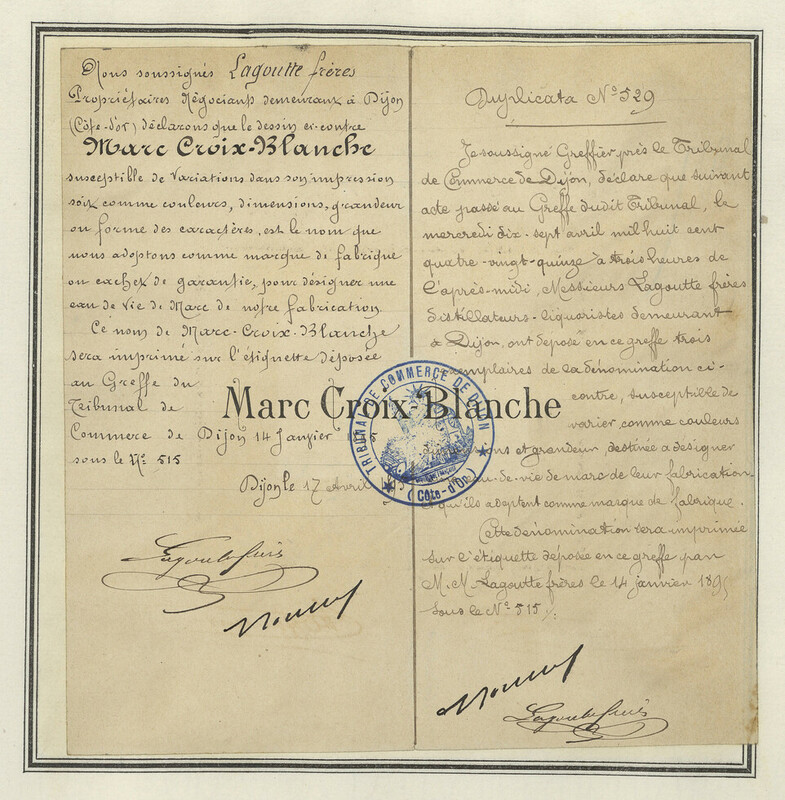 Nous soussignés Lagoutte frères
Propriétaires Négociants demeurant à Dijon
(Côte-d'or) déclarons que le dessin ci-contre
Marc Croix-Blanche
susceptible de variations dans son impression
soit comme couleurs, dimensions, grandeur
ou forme des caractères, est le nom que
nous adoptons comme marque de fabrique
ou cachet de garantie, pour désigner une
eau de vie de Marc de notre fabrication
Ce nom de Marc-Croix-Blanche
sera imprimé sur l'étiquette déposée
au Greffe du
Tribunal de
Commerce de Dijon 14 Janvier
sous le No 515
Dijon le 17 Avril
Lagoutte frères
Marc Croix-Blanche
TRIBUNAL DE COMMERCE DE DIJON
(Côte-d'Or)
Duplicata No 529
Je soussigné Greffier près le Tribunal
de Commerce de Dijon, déclare que suivant
acte passé au Greffe dudit Tribunal, le
mercredi dix-sept avril mil huit cent
quatre-vingt-quinze à trois heures de
l'après-midi, Messieurs Lagoutte frères
distillateurs-liquoristes demeurant
à Dijon, ont déposé en ce greffe trois
exemplaires de la dénomination ci-
contre, susceptible de
varier comme couleurs
et grandeur, destinée à désigner
eau-de-vie de marc de leur fabrication
et qu'ils adoptent comme marque de fabrique.
Cette dénomination sera imprimée
sur l'étiquette déposée en ce greffe par
M.M. Lagoutte frères le 14 janvier 1895
sous le No 515.
Lagoutte frères